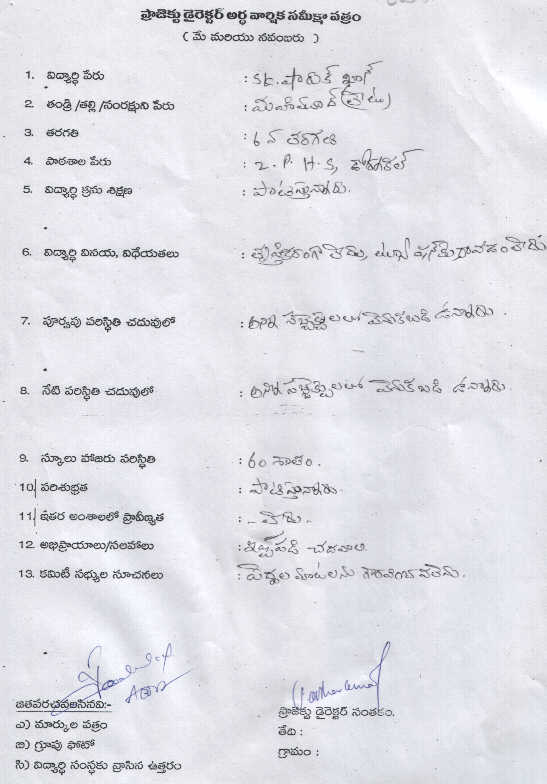 ప్రాజెక్టు డైరెక్టర్ అర్ధ వార్షిక సమీక్షా పత్రం
( మే మరియు నవంబరు )
1. విద్యార్ధి పేరు : SK. ఫారుక్
2 తండ్రి /తల్లి /సంరక్షుని పేరు :
3. తరగతి : 6 వ తరగతి
4. పాఠశాల పేరు : Z. P. H. S,
5. విద్యార్ధి క్రమ శిక్షణ : పాటిస్తున్నారు.
6. విద్యార్ధి వినయ, విధేయతలు :
7. పూర్వపు పరిస్థితి చదువులో : అన్ని సబ్జెక్టులలో వెనుకబడి ఉన్నారు.
8. నేటి పరిస్థితి చదువులో : అన్ని సబ్జెక్టులలో వెనుకబడి ఉన్నారు.
9. స్కూలు హాజరు పరిస్థితి : 60 శాతం.
10 పరిశుభ్రత : పాటిస్తున్నారు.
11 ఇతర అంశాలలో ప్రావీణ్యత : - లేదు -
12. అభిప్రాయాలు/సలహాలు : ఇష్టపడి చదవాలి.
13. కమిటీ సభ్యుల సూచనలు : పెద్దల మాటలను గౌరవించవలెను.
జతపరచవలసినవి:-
ఎ) మార్కుల పత్రం
బి) గ్రూపు ఫోటో
సి) విద్యార్ధి సంస్థకు వ్రాసిన ఉత్తరం
ప్రాజెక్టు డైరెక్టర్ సంతకం.
తేది :
గ్రామం :